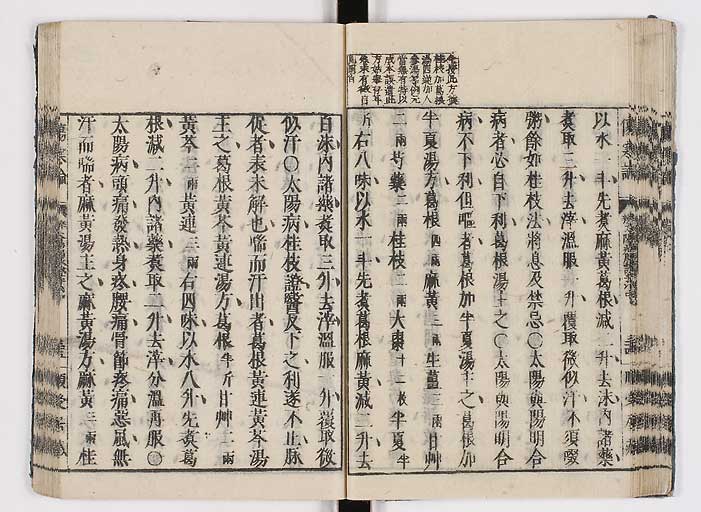 以水一斗先煮麻黃葛根減二升去沫內諸藥
煮取三升去滓溫服一升覆取微似汗不須啜
粥餘如桂枝法將息及禁忌○太陽與陽明合
病者必自下利葛根湯主之○太陽與陽明合
病不下利但嘔者葛根加半夏湯主之葛根加
半夏湯方葛根四兩麻黃三兩生薑三兩甘艸
二兩芍藥二兩桂枝二兩大棗十二枚半夏半
升右八味以水一斗先煮葛根麻黃減二升去
白沫內諸藥煮取三升去滓溫服一升覆取微
似汗○太陽病桂枝證醫反下之利遂不止脉
促者表未解也喘而汗出者葛根黃連黃芩湯
主之葛根黃芩黃連湯方葛根半斤甘艸二兩
黃芩二兩黃連三兩右四味以水八升先煮葛
根減二升內諸藥煮取二升去滓分溫再服○
太陽病頭痛發熱身疼腰痛骨節疼痛惡風無
汗而喘者麻黃湯主之麻黃湯方麻黃三兩桂